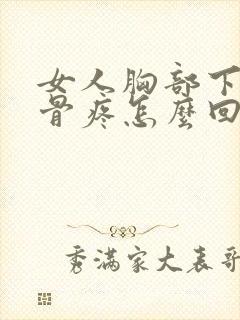 女人胸部下
骨疼怎麼回
秀滿家大表哥